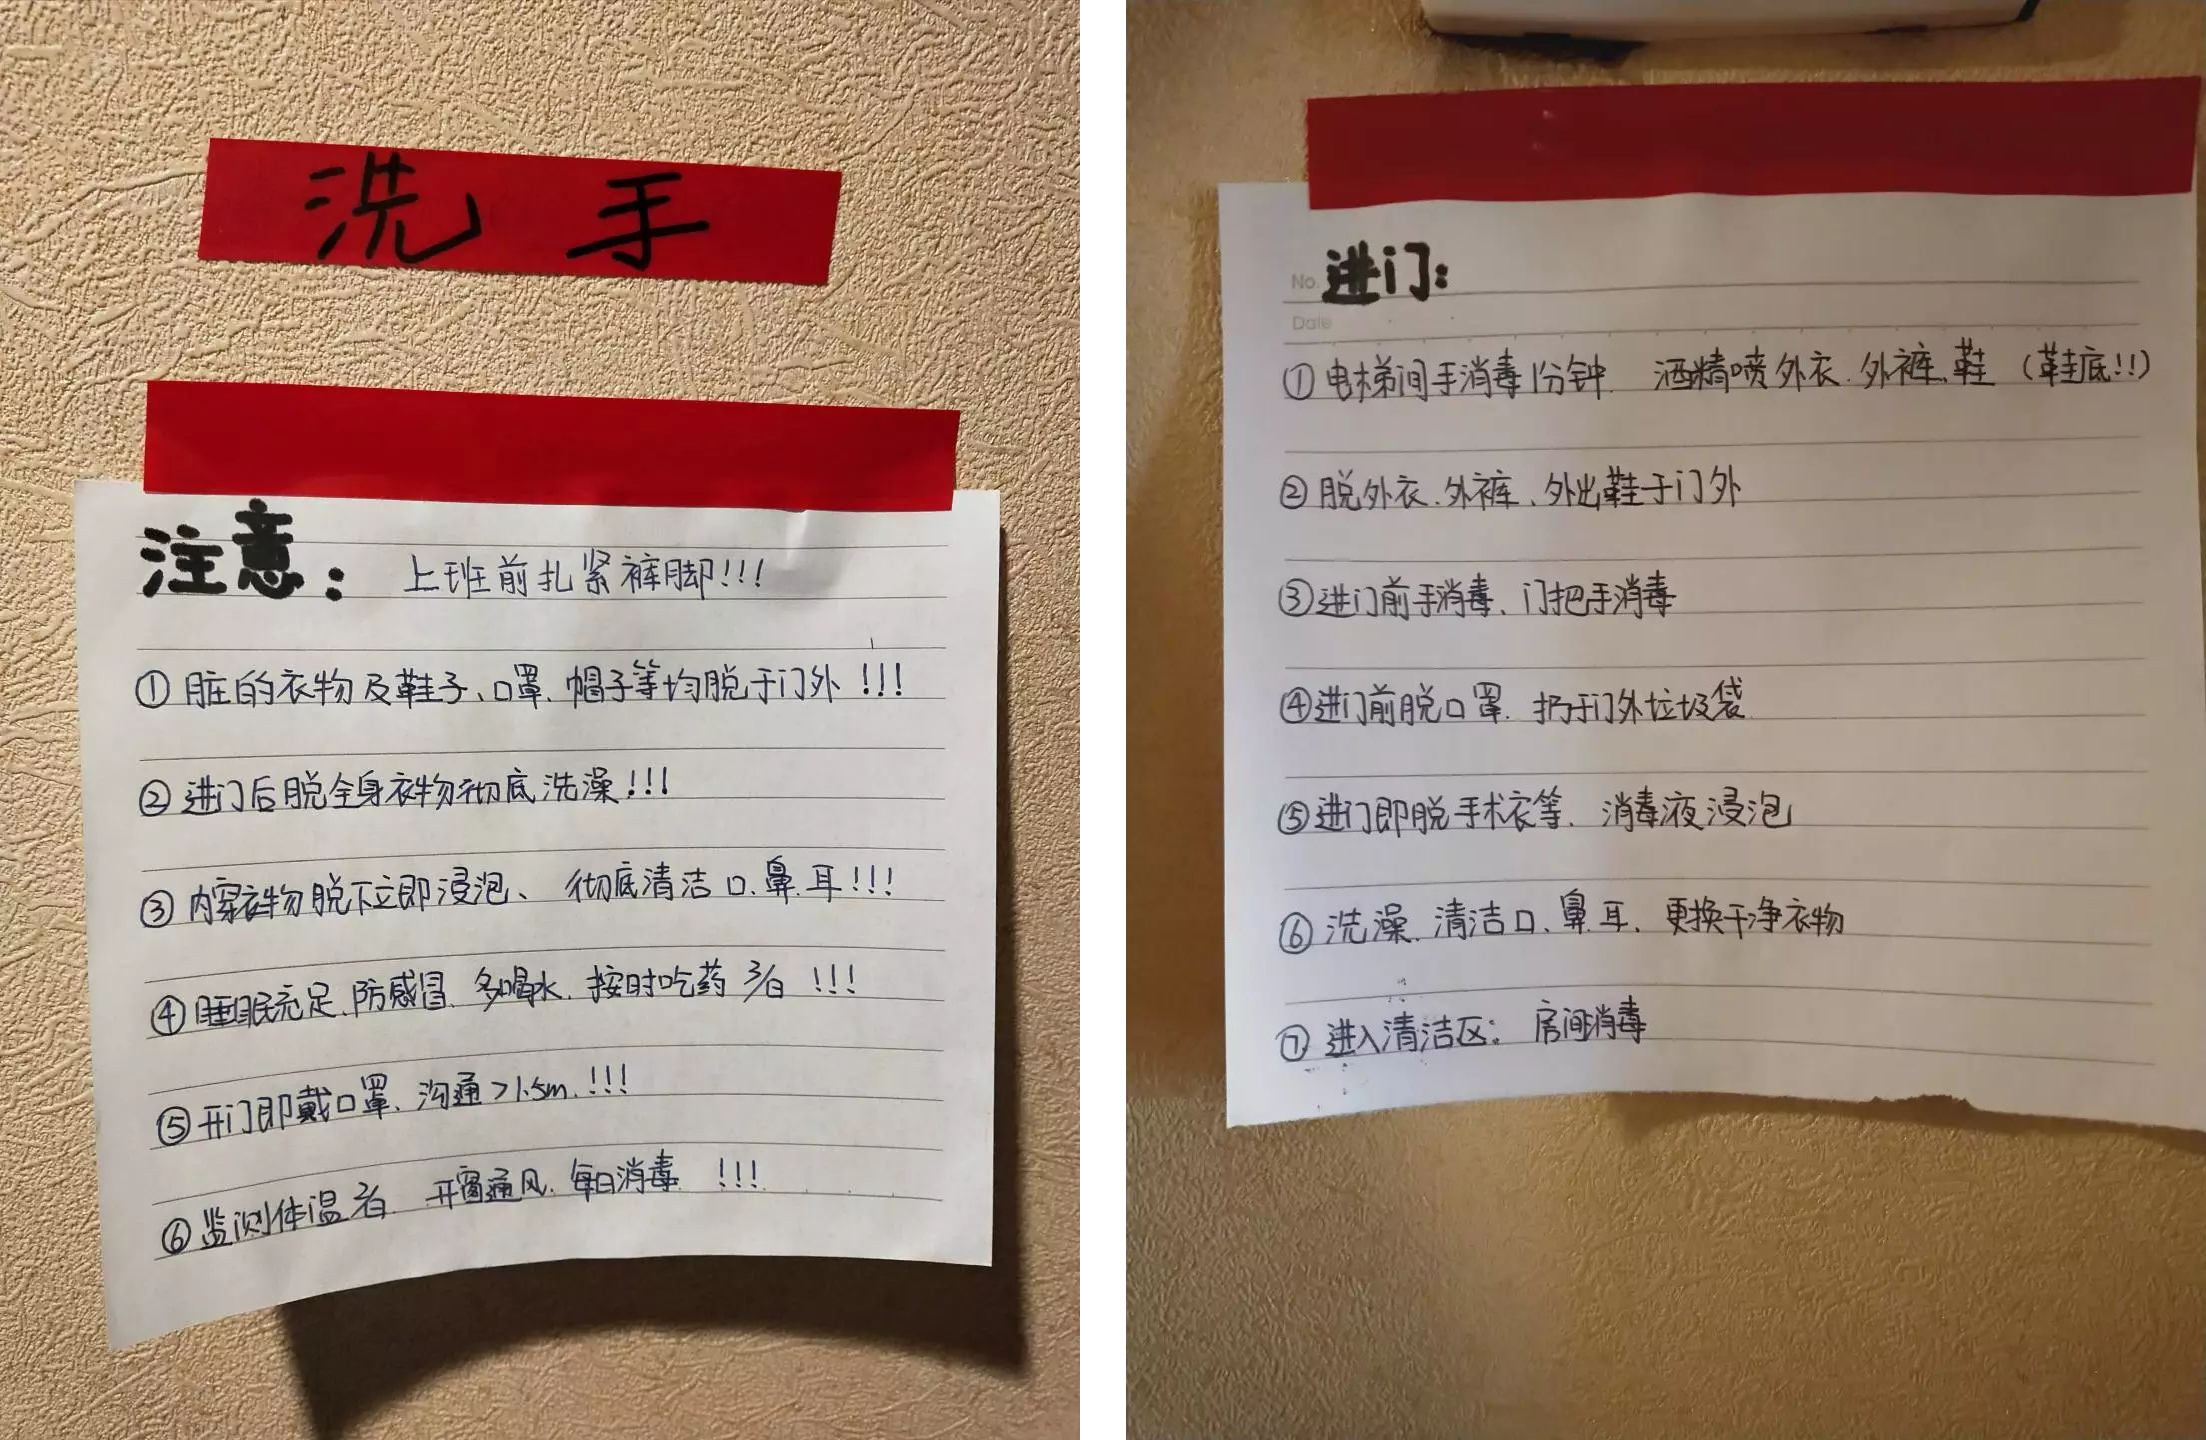 洗手
注意： 上班前扎紧裤脚!!!
①脏的衣物及鞋子、口罩、帽子等均脱于门外!!!
②进门后脱全身衣物彻底洗澡!!!
③内穿衣物脱下立即浸泡、彻底清洁口、鼻、耳!!!
④睡眠充足、防感冒、多喝水、按时吃药 3/日 !!!
⑤开门即戴口罩、沟通>1.5m.!!!
⑥监测体温 2/日 开窗通风、每日消毒 !!!
No. 进门：
Date
①电梯间手消毒1分钟. 酒精喷外衣.外裤、鞋（鞋底!!）
②脱外衣.外裤、外出鞋于门外
③进门前手消毒、门把手消毒
④进门前脱口罩、扔于门外垃圾袋
⑤进门即脱手术衣等、消毒液浸泡
⑥洗澡、清洁口、鼻、耳、更换干净衣物
⑦进入清洁区：房间消毒